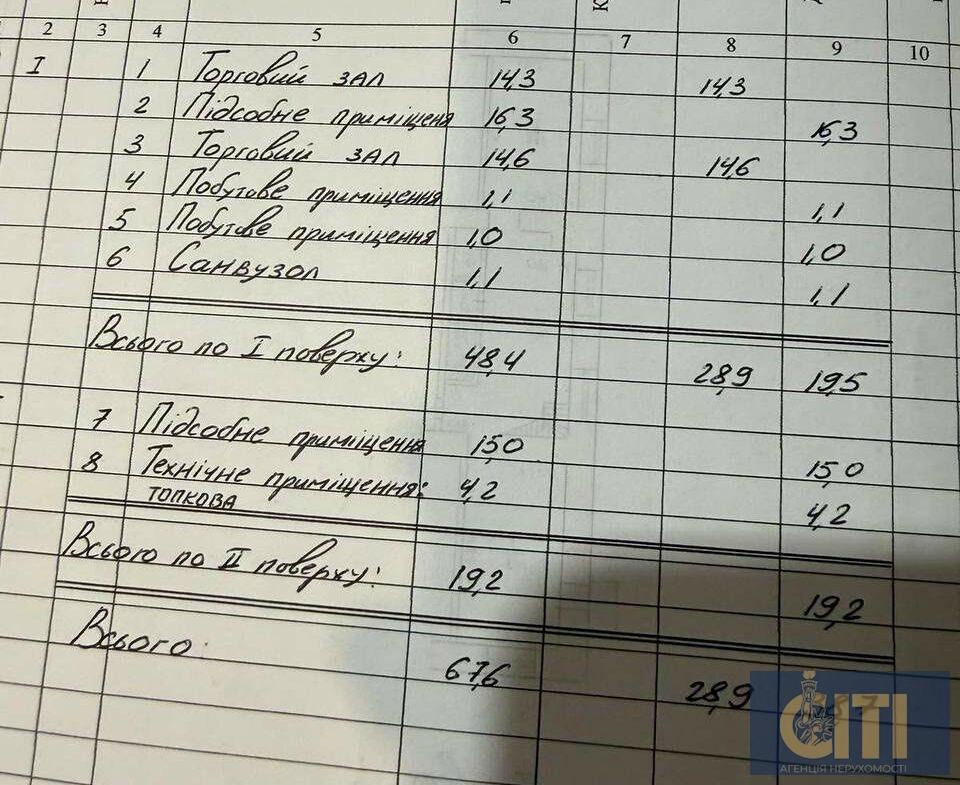 2 3 4 5 6 7 8 9 10
I 1 Торговий зал 14,3 14,3
2 Підсобне приміщеня 16,3 16,3
3 Торговий зал 14,6 14,6
4 Побутове приміщення 1,1 1,1
5 Побутове приміщення 1,0 1,0
6 Санвузол 1,1 1,1
Всього по I поверху: 48,4 28,9 19,5
7 Підсобне приміщення 15,0 15,0
8 Технічне приміщення: 4,2 4,2
топкова
Всього по II поверху: 19,2 19,2
Всього: 67,6 28,9
СІТІ
АГЕНЦІЯ НЕРУХОМОСТІ